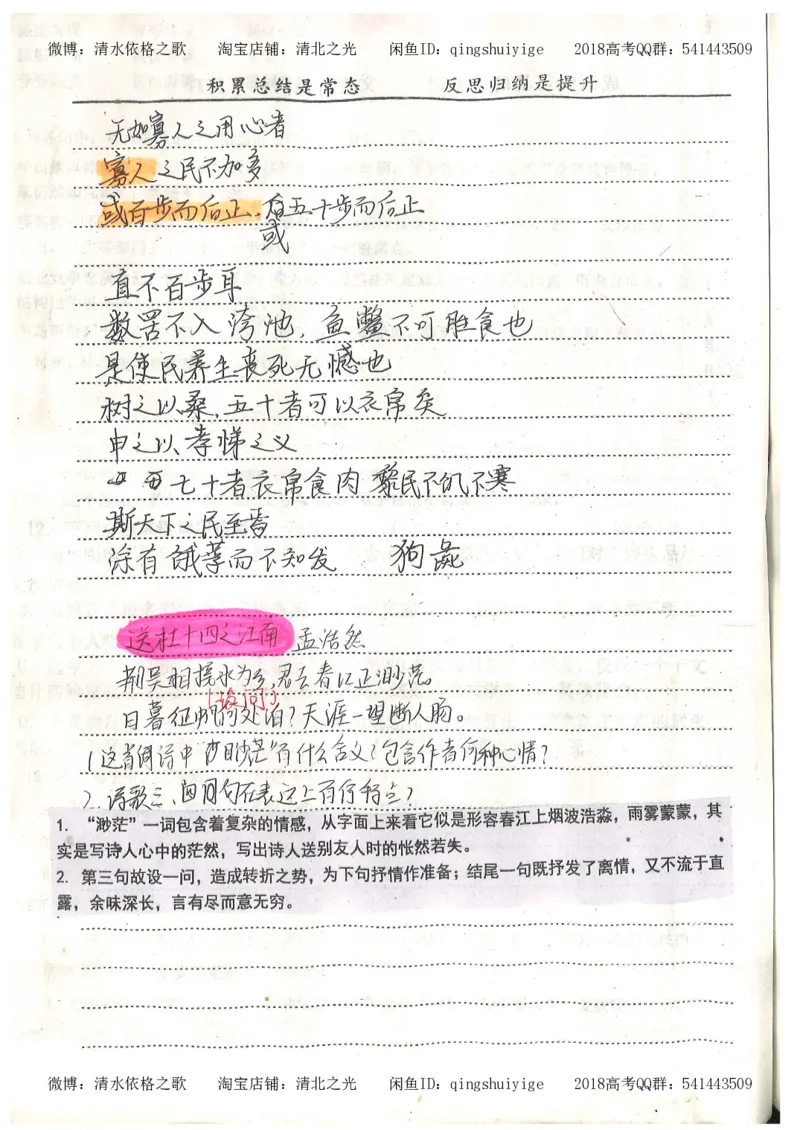 微博：清水依格之歌 淘宝店铺：清北之光 闲鱼ID：qingshuiyige 2018高考QQ群：541443509
积累总结是常态 反思归纳是提升
无如寡人之用心者
寡人之民不加多
或百步而后止，有五十步而后止
或
直不百步耳
数罟不入洿池，鱼鳖不可胜食也
是使民养生丧死无憾也
树之以桑，五十者可以衣帛矣
申之以孝悌之义
七十者衣帛食肉 黎民不饥不寒
斯天下之民至焉
涂有饿莩而不知发 狗彘
送杜十四之江南 孟浩然
荆吴相接水为乡，君去春江正渺茫。
(设问)
日暮征帆何处泊？天涯一望断人肠。
1 这首诗中"渺茫"有什么含义？包含作者何种心情？
2. 诗歌三、四句在表达上有何特点？
1. “渺茫”一词包含着复杂的情感，从字面上来看它似是形容春江上烟波浩淼，雨雾蒙蒙，其
实是写诗人心中的茫然，写出诗人送别友人时的怅然若失。
2. 第三句故设一问，造成转折之势，为下句抒情作准备；结尾一句既抒发了离情，又不流于直
露，余味深长，言有尽而意无穷。
微博：清水依格之歌 淘宝店铺：清北之光 闲鱼ID：qingshuiyige 2018高考QQ群：541443509